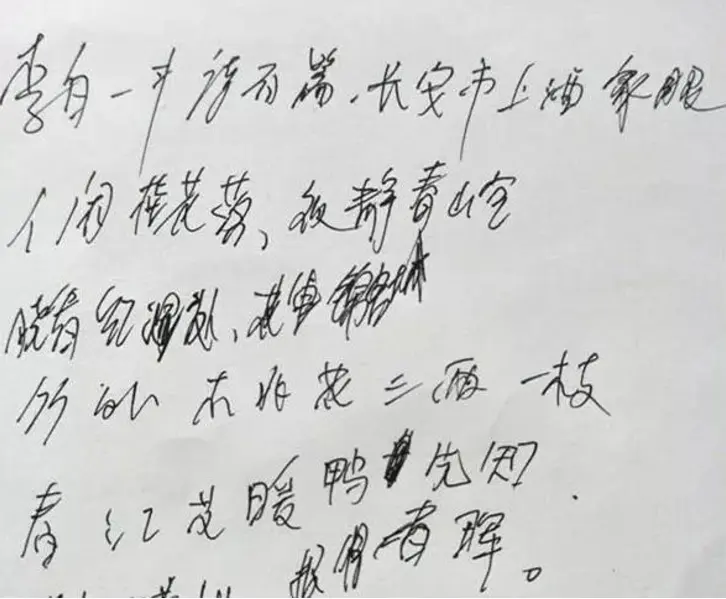 李白一斗诗百篇、长安市上酒家眠
人闲桂花落、夜静春山空
晓看红湿处、花重锦官城
竹 外 桃花三两一枝
春江 暖鸭 先知
报 春晖。